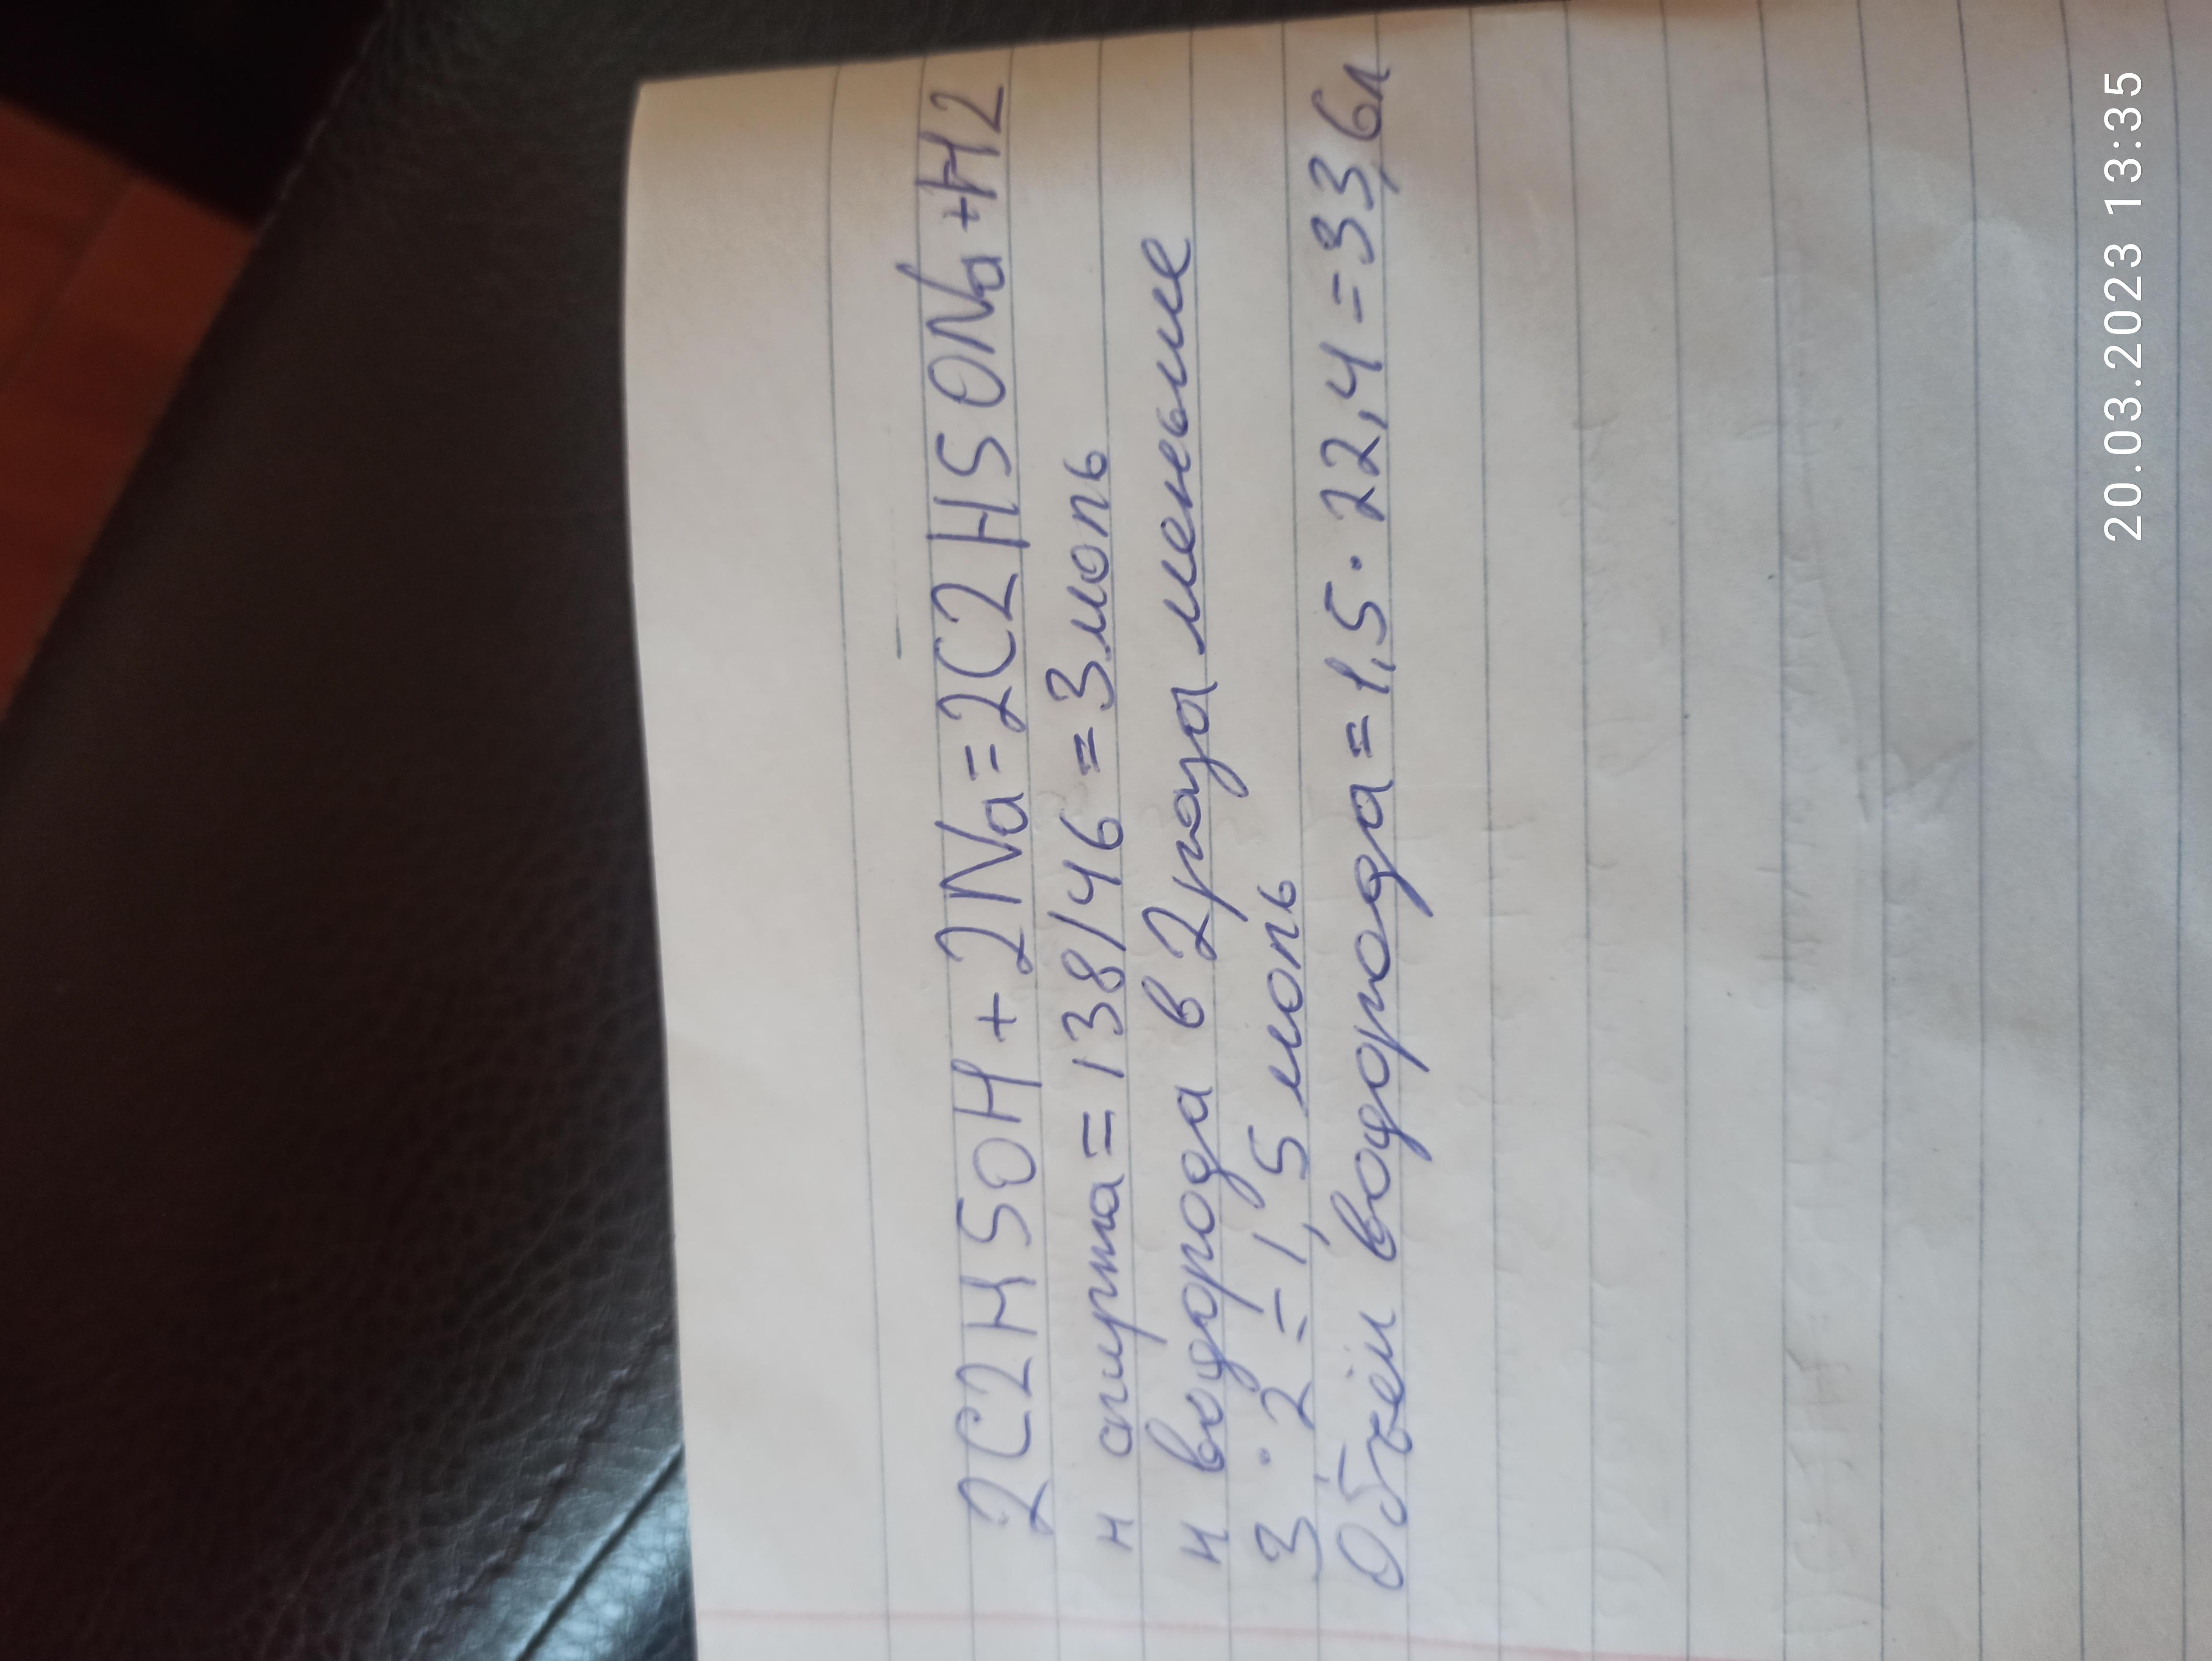 2C2H5OH+2Na=2C2H5ONa+H2
н спирта=138/46=3моль
н водорода в 2 раза меньше
3·2=1,5 моль
Объём водорода=1,5·22,4=33,6л
20.03.2023 13:35